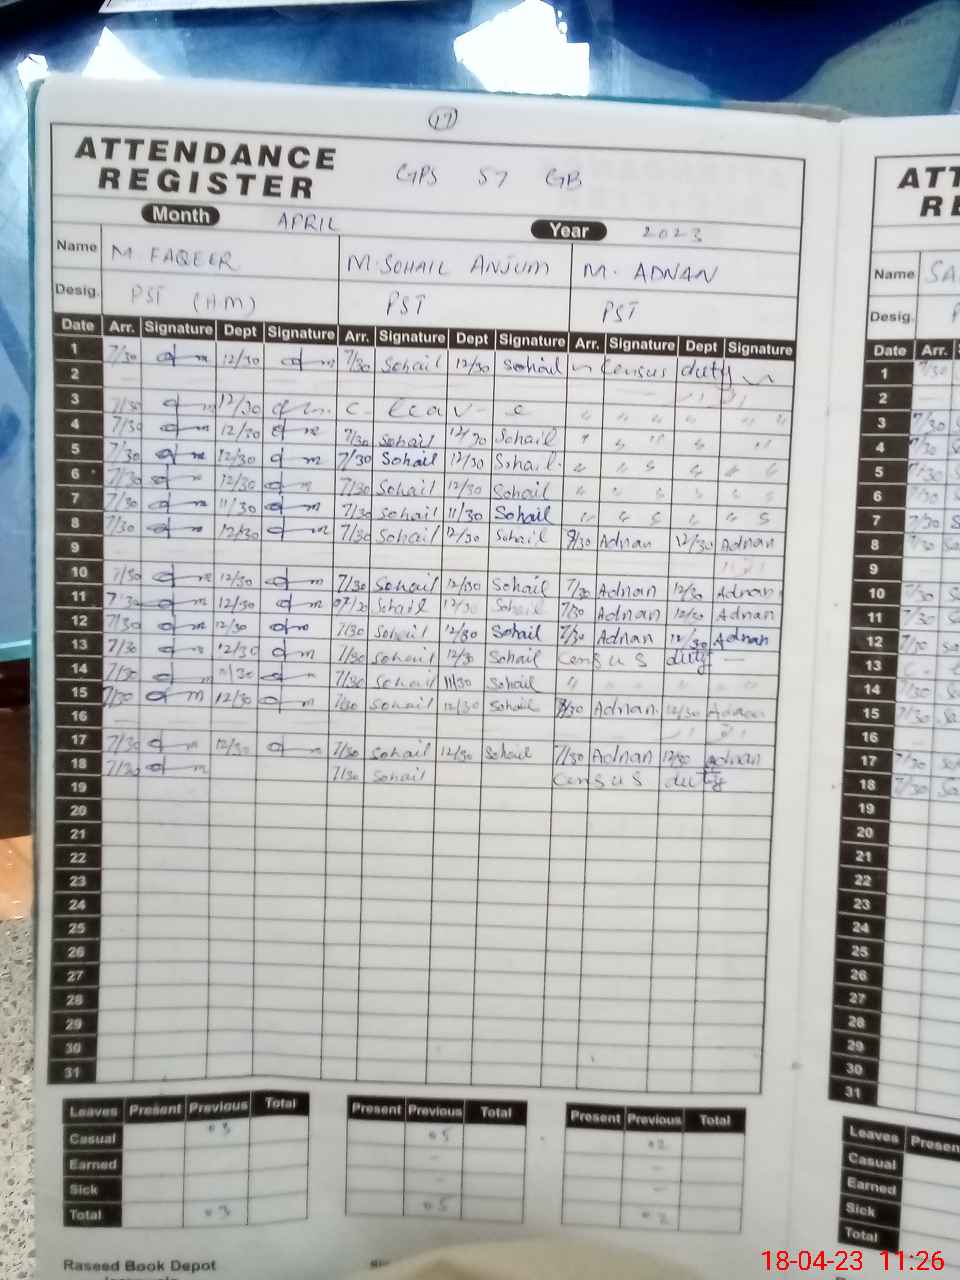 17
ATTENDANCE REGISTER GPS 57 GB
Month APRIL Year 2023
Name M. FAQEER M. SOHAIL ANJUM M. ADNAN
Desig. PST (H.M) PST PST
Date Arr. Signature Dept Signature Arr. Signature Dept Signature Arr. Signature Dept Signature
1 7/30 12/30 7/30 Sohail 12/30 Sohail Census duty
2
3 7/30 12/30 C- Leav-e " " " " "
4 7/30 12/30 7/30 Sohail 12/30 Sohail " " " " "
5 7/30 12/30 7/30 Sohail 12/30 Sohail " " " " " "
6 7/30 12/30 7/30 Sohail 12/30 Sohail " " " " " "
7 7/30 11/30 7/30 Sohail 11/30 Sohail " " " " " "
8 7/30 12/30 7/30 Sohail 12/30 Sohail Adnan 12/30 Adnan
9
10 7/30 12/30 7/30 Sohail 12/30 Sohail 7/30 Adnan 12/30 Adnan
11 7/30 12/30 Sohail 12/30 Sohail 7/30 Adnan 12/30 Adnan
12 7/30 12/30 7/30 Sohail 12/30 Sohail 7/30 Adnan 12/30 Adnan
13 7/30 12/30 7/30 Sohail 12/30 Sohail Census duty —
14 7/30 11/30 7/30 Sohail 11/30 Sohail " " " " "
15 7/30 12/30 7/30 Sohail 12/30 Sohail Adnan 12/30 Adnan
16
17 7/30 12/30 7/30 Sohail 12/30 Sohail 7/30 Adnan 12/30 Adnan
18 7/30 7/30 Sohail Census duty
19
20
21
22
23
24
25
26
27
28
29
30
31
Leaves Present Previous Total Present Previous Total Present Previous Total
Casual 03 05 02
Earned - -
Sick - -
Total 03 05 02
Raseed Book Depot
ATT
RE
Name SA
Desig. P
Date Arr. S
1 7/30
2
3 7/30
4 7/30
5 7/30
6 7/30
7 7/30
8 7/30
9
10 7/30
11 7/30
12 7/30
13
14 7/30
15 7/30
16
17 7/30
18 7/30
19
20
21
22
23
24
25
26
27
28
29
30
31
Leaves Presen
Casual
Earned
Sick
Total
18-04-23 11:26